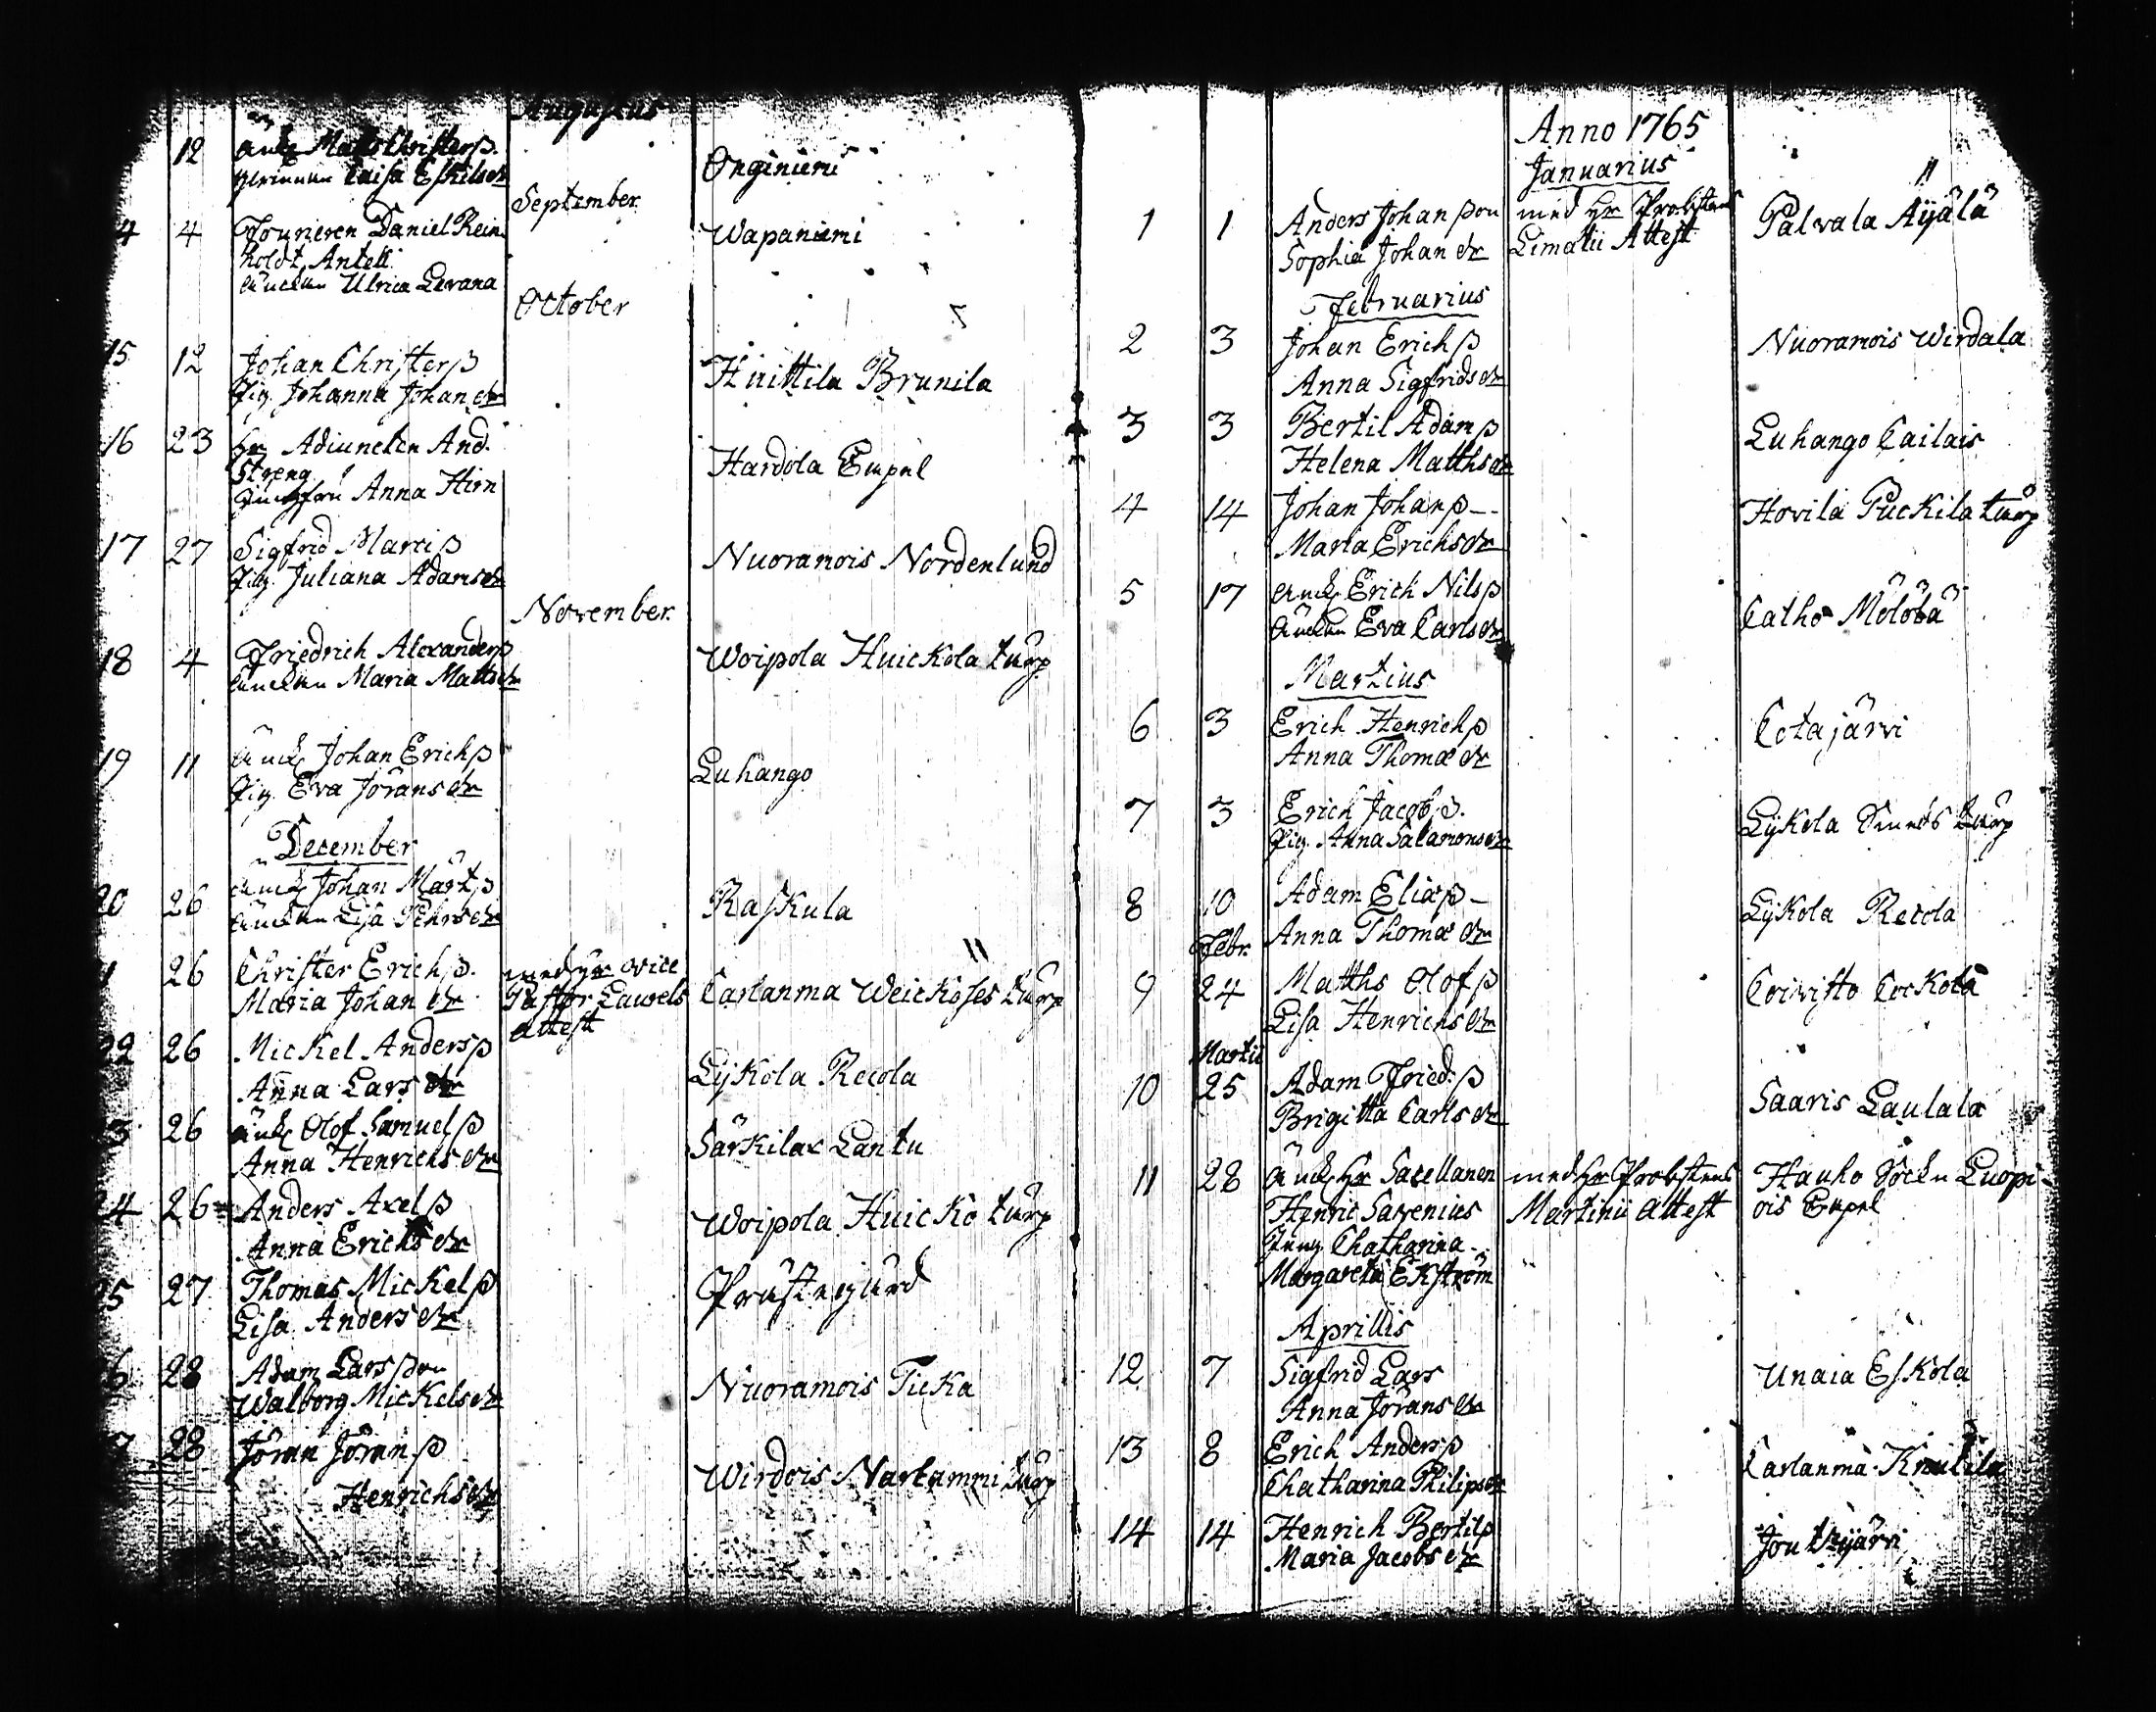 Augustus
12 änk. Matts Christerß.
Qvinnan Caisa Eskilsdr
Onginiemi
September
4 4 Fourieren Daniel Rein-
holdt Antell
änckan Ulrica Levana
Wapaniemi
October
15 12 Johan Christerß
Pig. Johanna Johansdr
Huittila Brunila
16 23 Hr Adiuncten And.
Streng
Jungfru Anna Hirn
Hardola Capel
17 27 Sigfrid Martiß
Pig. Juliana Adamsdr
Nuoramois Nordenlund
November.
18 4 Friedrich Alexanderß
änckan Maria Mattsdr
Woipola Huickola torp
19 11 änk. Johan Erichß
Pig. Eva Jöransdr
Luhango
December
20 26 änk. Johan Märtß
änckan Lisa Pehrsdr
Raskula
26 Christer Erichß.
Maria Johandr
med Hr vice
Pastor Lawels
attest
Carlanma Weickoses torp
22 26 Mickel Andersß
Anna Larsdr
Lykola Recola
3 26 änk. Olof Samuelß
Anna Henrichsdr
Särkilax Lantu
24 26 Anders Axelß
Anna Erichsdr
Woipola Huicko torp
25 27 Thomas Mickelß
Lisa Andersdr
Prästegård
6 28 Adam Larsson
Walborg Mickelsdr
Nuoramois Ticka
7 28 Jöran Jöranß
Henrichsdr
Wirdois Narkammi torp
Anno 1765
Januarius
1 1 Anders Johanßon
Sophia Johandr
med Hr Probstens
Limatii Attest
Palvala Äyälä
Februarius
2 3 Johan Erichß
Anna Sigfridsdr
Nuoramois Wirdala
3 3 Bertil Adamß
Helena Matthsdr
Luhango Cailais
4 14 Johan Johanß
Maria Erichsdr
Hovila Puckila torp
5 17 änk. Erich Nilsß
änckan Eva Carlsdr
Catho Mölöbä
Martius
6 3 Erich Henrichß
Anna Thomædr
Cotajärvi
7 3 Erich Jacobß.
Pig. Anna Salamonsdr
Lykola torp
8 10 Adam Eliaß
Anna Thomædr
Lykola Recola
Febr.
9 24 Matths Olofß
Lisa Henrichsdr
Coivisto Cockola
Martii
10 25 Adam Fried.ß
Brigitta Carlsdr
Saaris Laulala
11 28 änk. Hr Sacellanen
Henric Savenius
Jung. Chatharina
Margareta Ekström
med Hr Probstens
Martinii attest
Hauho Sockn Luopi-
ois Capel
Aprillis
12 7 Sigfrid Lars
Anna Jöransdr
Unaia Eskola
13 8 Erich Andersß
Chatharina Philipsdr
Carlanma Knutila
14 14 Henrich Bertilß
Maria Jacobsdr
Joutsjärvi